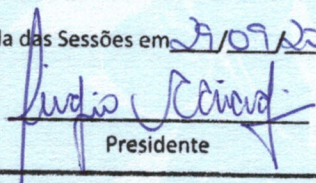 la das Sessões em 29/09/20
Presidente